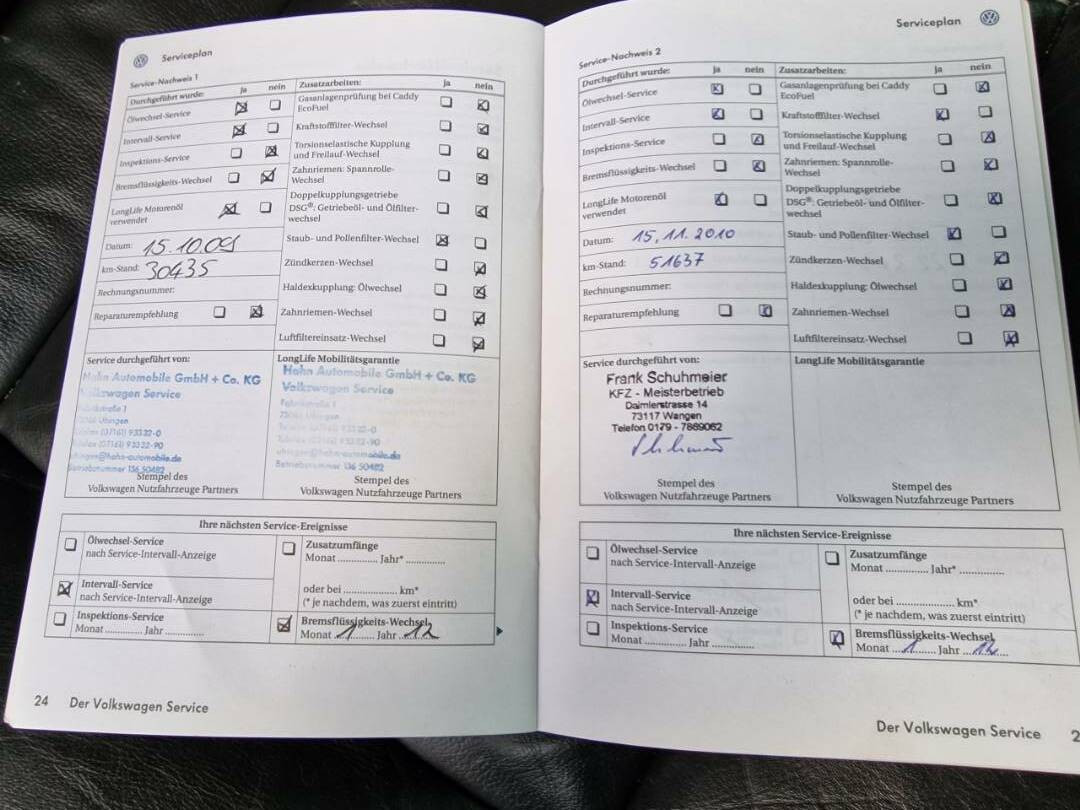 Serviceplan
Service-Nachweis 1
Durchgeführt wurde: ja nein
Ölwechsel-Service
Intervall-Service
Inspektions-Service
Bremsflüssigkeits-Wechsel
LongLife Motorenöl
verwendet
Datum: 15.10.09
km-Stand: 30435
Rechnungsnummer:
Reparaturempfehlung
Zusatzarbeiten: ja nein
Gasanlagenprüfung bei Caddy
EcoFuel
Kraftstofffilter-Wechsel
Torsionselastische Kupplung
und Freilauf-Wechsel
Zahnriemen: Spannrolle-
Wechsel
Doppelkupplungsgetriebe
DSG®: Getriebeöl- und Ölfilter-
wechsel
Staub- und Pollenfilter-Wechsel
Zündkerzen-Wechsel
Haldexkupplung: Ölwechsel
Zahnriemen-Wechsel
Luftfiltereinsatz-Wechsel
Service durchgeführt von:
Hahn Automobile GmbH + Co. KG
Volkswagen Service
Uhingen
(07161) 93332-0
(07161) 93332-90
uhingen@hahn-automobile.de
Betriebsnummer 136 50482
Stempel des
Volkswagen Nutzfahrzeuge Partners
LongLife Mobilitätsgarantie
Hahn Automobile GmbH + Co. KG
Volkswagen Service
Betriebsnummer 136 50482
Stempel des
Volkswagen Nutzfahrzeuge Partners
Ihre nächsten Service-Ereignisse
Ölwechsel-Service
nach Service-Intervall-Anzeige
Intervall-Service
nach Service-Intervall-Anzeige
Inspektions-Service
Monat ............ Jahr ............
Zusatzumfänge
Monat ............ Jahr* ............
oder bei .................. km*
(* je nachdem, was zuerst eintritt)
Bremsflüssigkeits-Wechsel
Monat 1 Jahr 12
24 Der Volkswagen Service
Serviceplan
Service-Nachweis 2
Durchgeführt wurde: ja nein
Ölwechsel-Service
Intervall-Service
Inspektions-Service
Bremsflüssigkeits-Wechsel
LongLife Motorenöl
verwendet
Datum: 15.11.2010
km-Stand: 51637
Rechnungsnummer:
Reparaturempfehlung
Zusatzarbeiten: ja nein
Gasanlagenprüfung bei Caddy
EcoFuel
Kraftstofffilter-Wechsel
Torsionselastische Kupplung
und Freilauf-Wechsel
Zahnriemen: Spannrolle-
Wechsel
Doppelkupplungsgetriebe
DSG®: Getriebeöl- und Ölfilter-
wechsel
Staub- und Pollenfilter-Wechsel
Zündkerzen-Wechsel
Haldexkupplung: Ölwechsel
Zahnriemen-Wechsel
Luftfiltereinsatz-Wechsel
Service durchgeführt von:
Frank Schuhmeier
KFZ - Meisterbetrieb
Daimlerstrasse 14
73117 Wangen
Telefon 0179 - 7869062
Stempel des
Volkswagen Nutzfahrzeuge Partners
LongLife Mobilitätsgarantie
Stempel des
Volkswagen Nutzfahrzeuge Partners
Ihre nächsten Service-Ereignisse
Ölwechsel-Service
nach Service-Intervall-Anzeige
Intervall-Service
nach Service-Intervall-Anzeige
Inspektions-Service
Monat ............ Jahr ............
Zusatzumfänge
Monat ............ Jahr* ............
oder bei .................. km*
(* je nachdem, was zuerst eintritt)
Bremsflüssigkeits-Wechsel
Monat 1 Jahr 12
Der Volkswagen Service